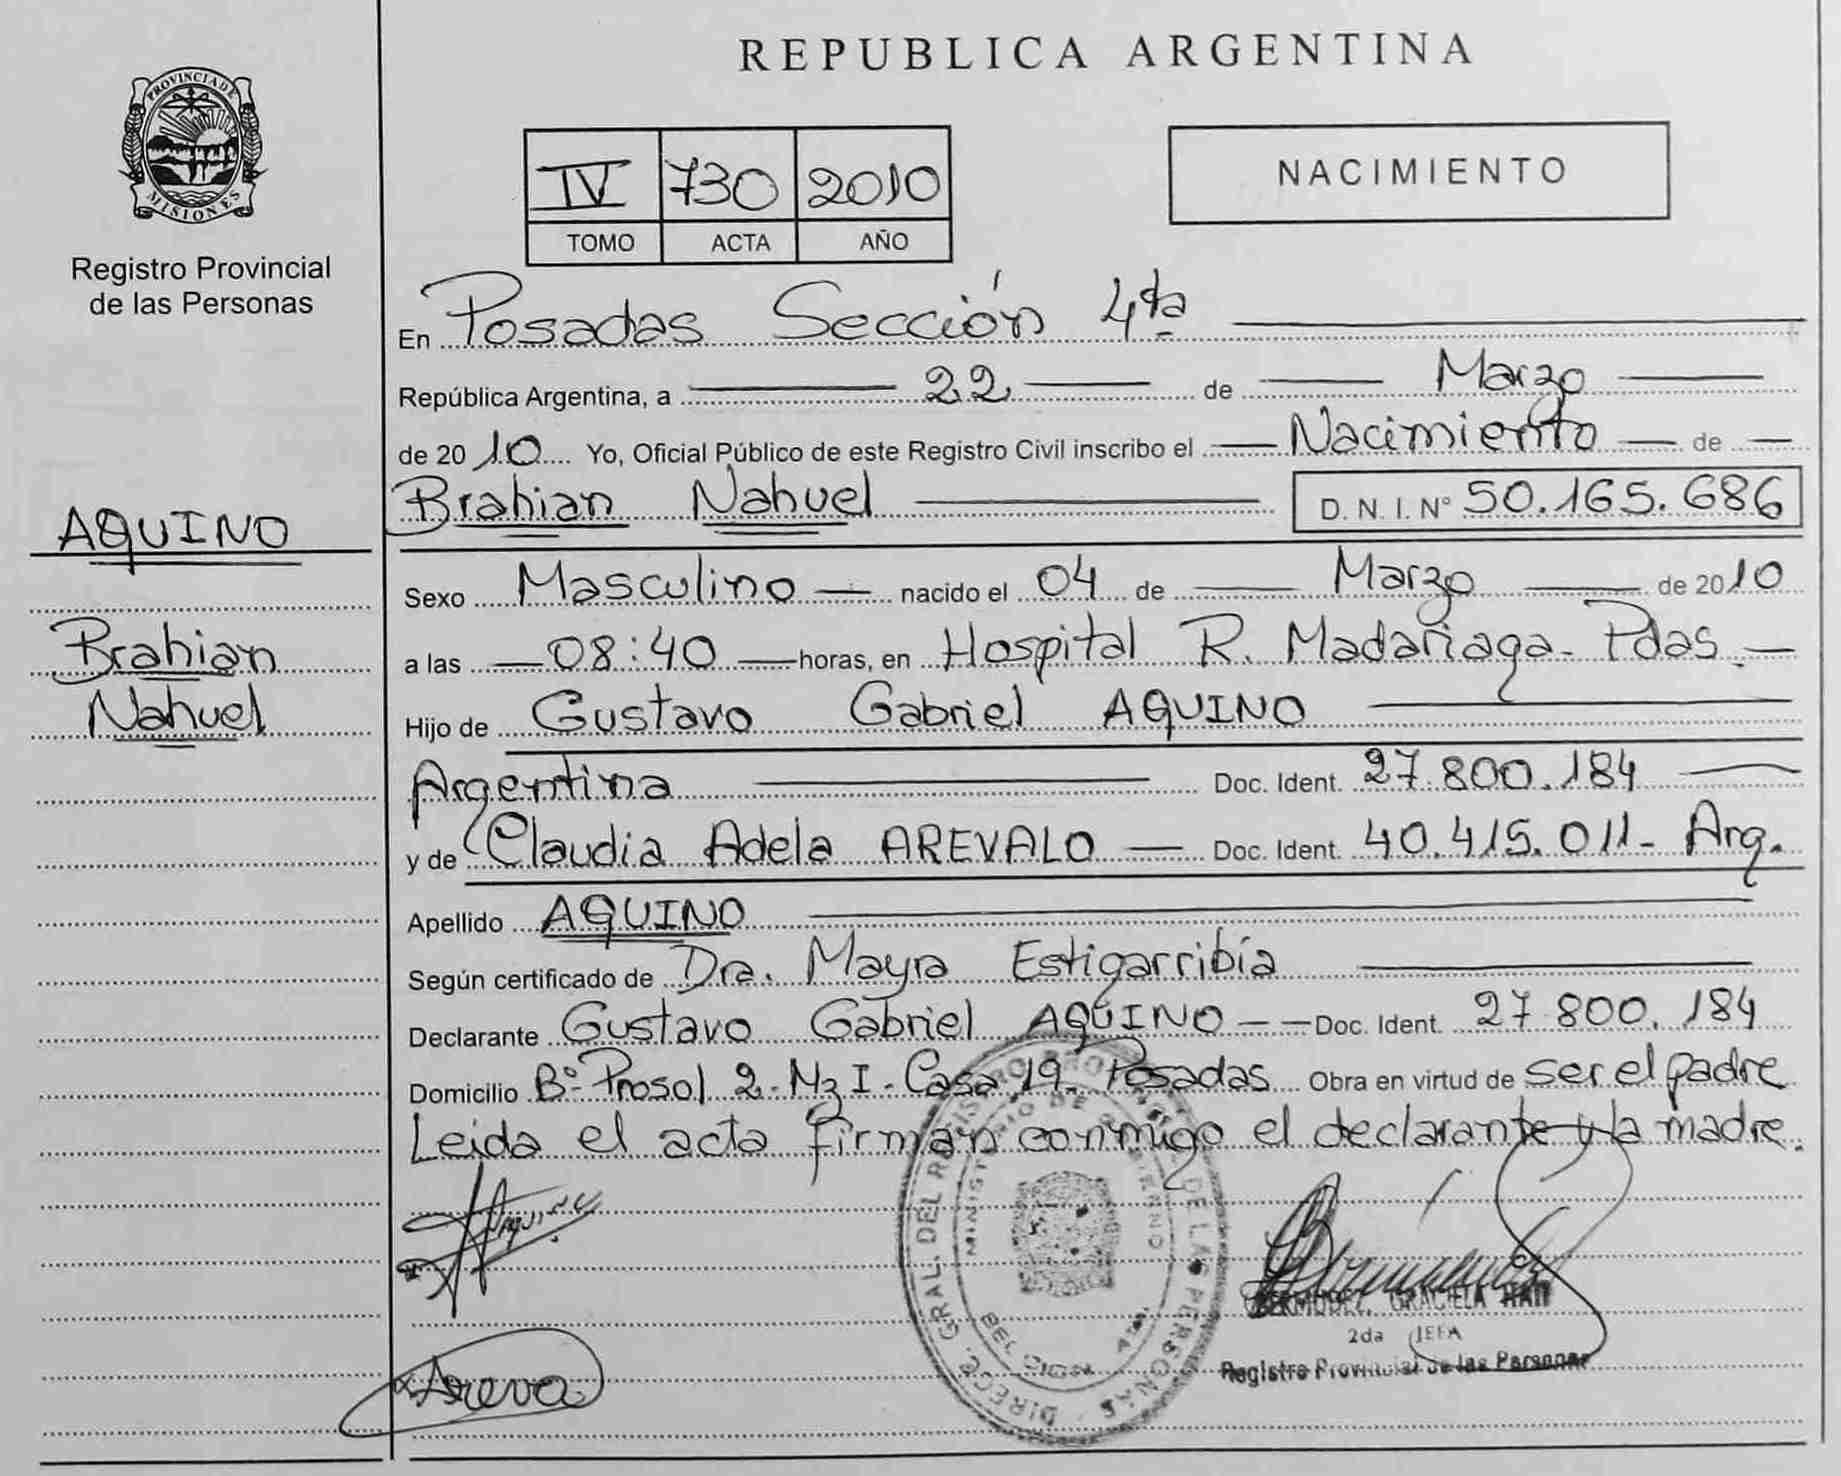 PROVINCIA DE
MISIONES
Registro Provincial
de las Personas
AQUINO
Brahian
Nahuel
REPUBLICA ARGENTINA
IV 730 2010
TOMO ACTA AÑO
NACIMIENTO
En Posadas Sección 4ta
República Argentina, a 22 de Marzo
de 2010 Yo, Oficial Público de este Registro Civil inscribo el Nacimiento de
Brahian Nahuel D. N. I. Nº 50.165.686
Sexo Masculino nacido el 04 de Marzo de 2010
a las 08:40 horas, en Hospital R. Madariaga - Pdas.
Hijo de Gustavo Gabriel AQUINO
Argentina Doc. Ident. 27.800.184
y de Claudia Adela AREVALO Doc. Ident. 40.415.011 - Arg.
Apellido AQUINO
Según certificado de Dra. Mayra Estigarribía
Declarante Gustavo Gabriel AQUINO - - Doc. Ident. 27.800.184
Domicilio Bº Prosol 2 - Mz I - Casa 19 - Posadas Obra en virtud de ser el padre
Leida el acta firman conmigo el declarante y la madre.
Areva
BERMUDEZ, GRACIELA
2da JEFA
Registro Provincial de las Personas
DIRECC. GRAL. DEL REGISTRO PROV. DE LAS PERSONAS
MINISTERIO DE GOBIERNO